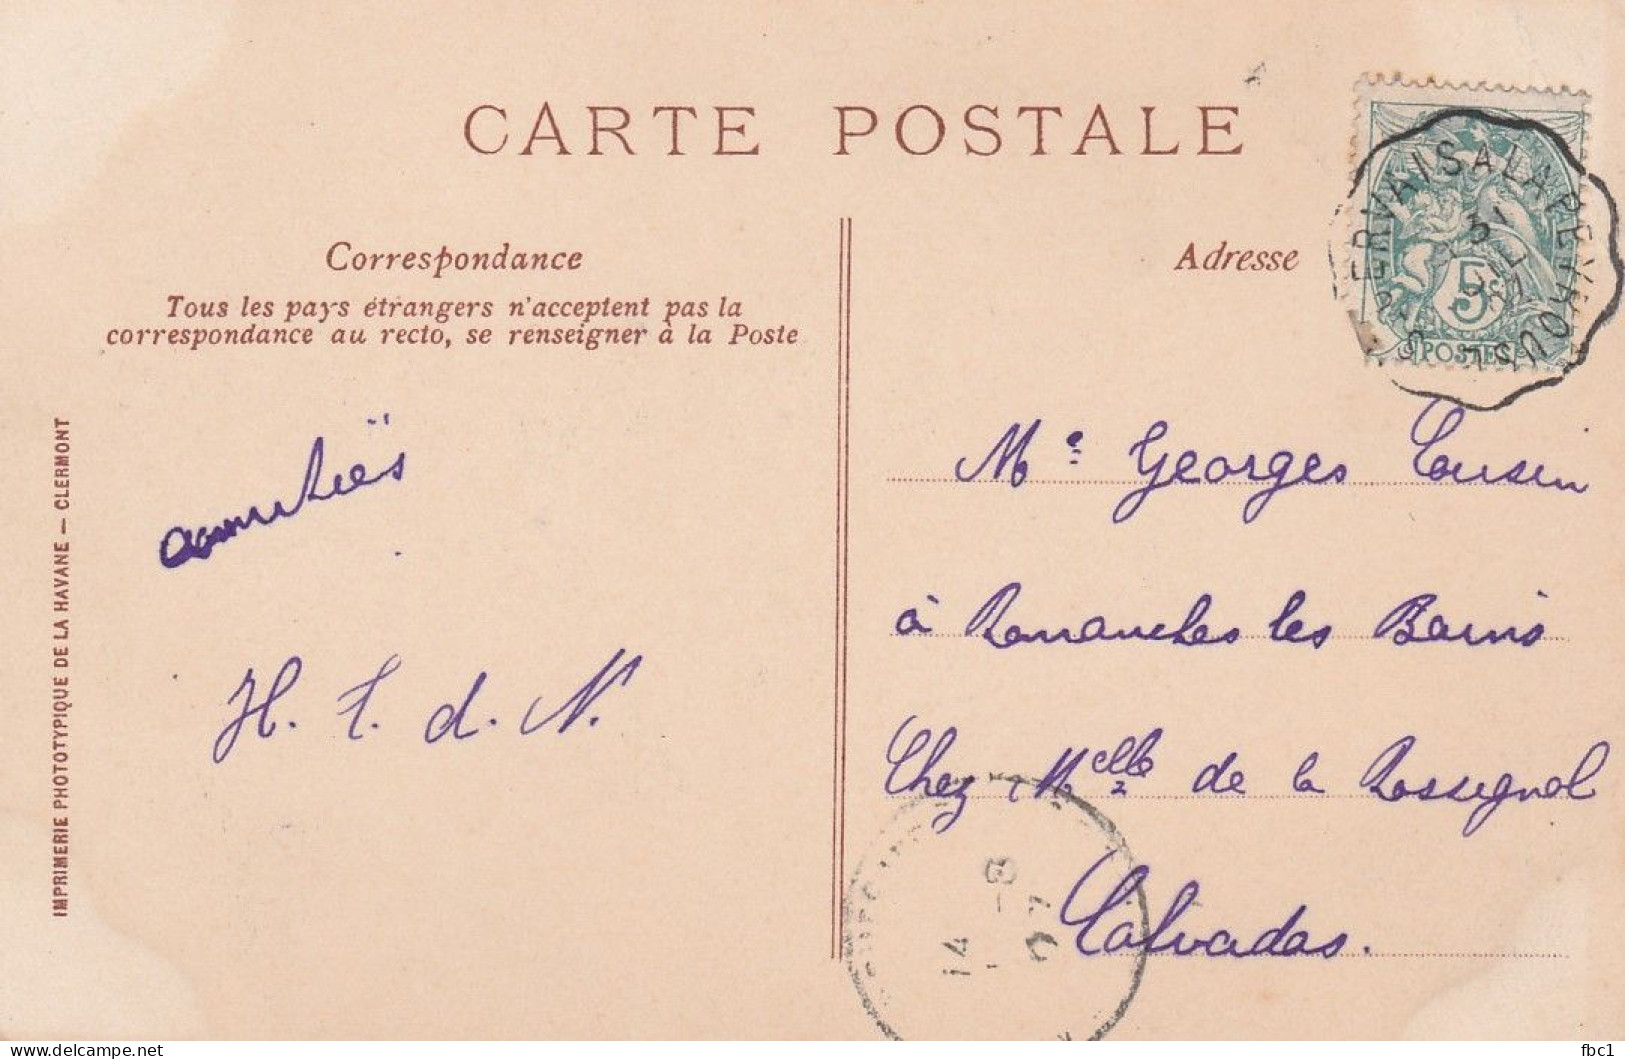 CARTE POSTALE
Correspondance
Tous les pays étrangers n'acceptent pas la
correspondance au recto, se renseigner à la Poste
Adresse
ERVAISALAPEYROUS
31
5c
POSTES
amitiés
H. T. d. N.
Mr Georges Cousin
à Ranauches les Bains
Chez Melle de la Rossignol
Calvados.
14 - 8
07
IMPRIMERIE PHOTOTYPIQUE DE LA HAVANE — CLERMONT
delcampe.net
fbc1